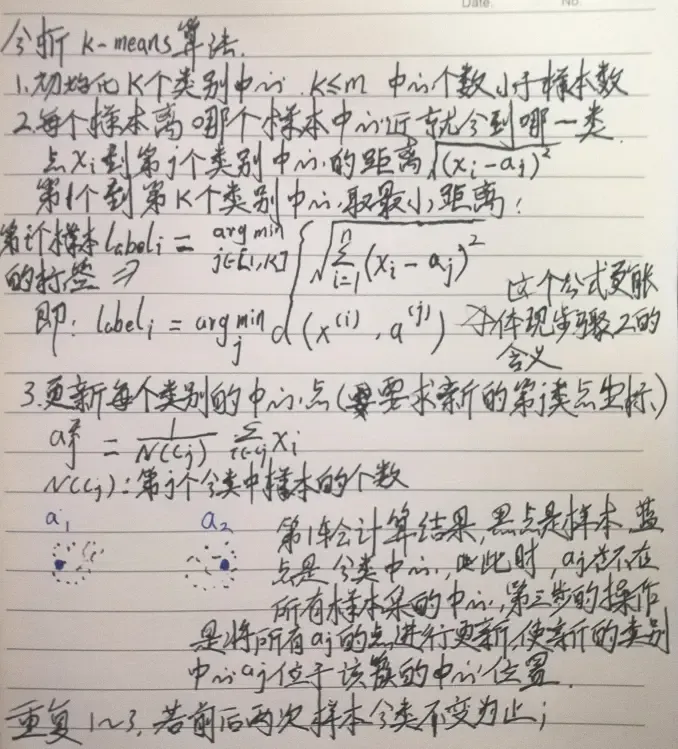 Date. No.
分析 k-means算法.
1.初始化 K个类别中心. k≤m 中心个数小于样本数
2.每个样本离哪个样本中心近就分到哪一类
点xi到第j个类别中心的距离√(xi-aj)²
第1个到第K个类别中心,取最小距离:
第i个样本 labeli = arg min j∈[1,K] { √ n Σ i=1 (xi-aj)²
的标签 ⇒
这个公式更能
即: labeli = arg min j d(x(i), a(j)) → 体现步骤2的
含义
3.更新每个类别的中心点(要求新的第j类点坐标)
aj = 1/N(Cj) Σ i∈Cj xi
N(Cj):第j个分类中样本的个数
a1 a2 第1轮会计算结果,黑点是样本,蓝
点是分类中心,此时,aj不在
所有样本的中心,第三步的操作
是将所有aj的点进行更新,使新的类别
中心aj位于该簇的中心位置.
重复1~3,若前后两次样本分类不变为止;